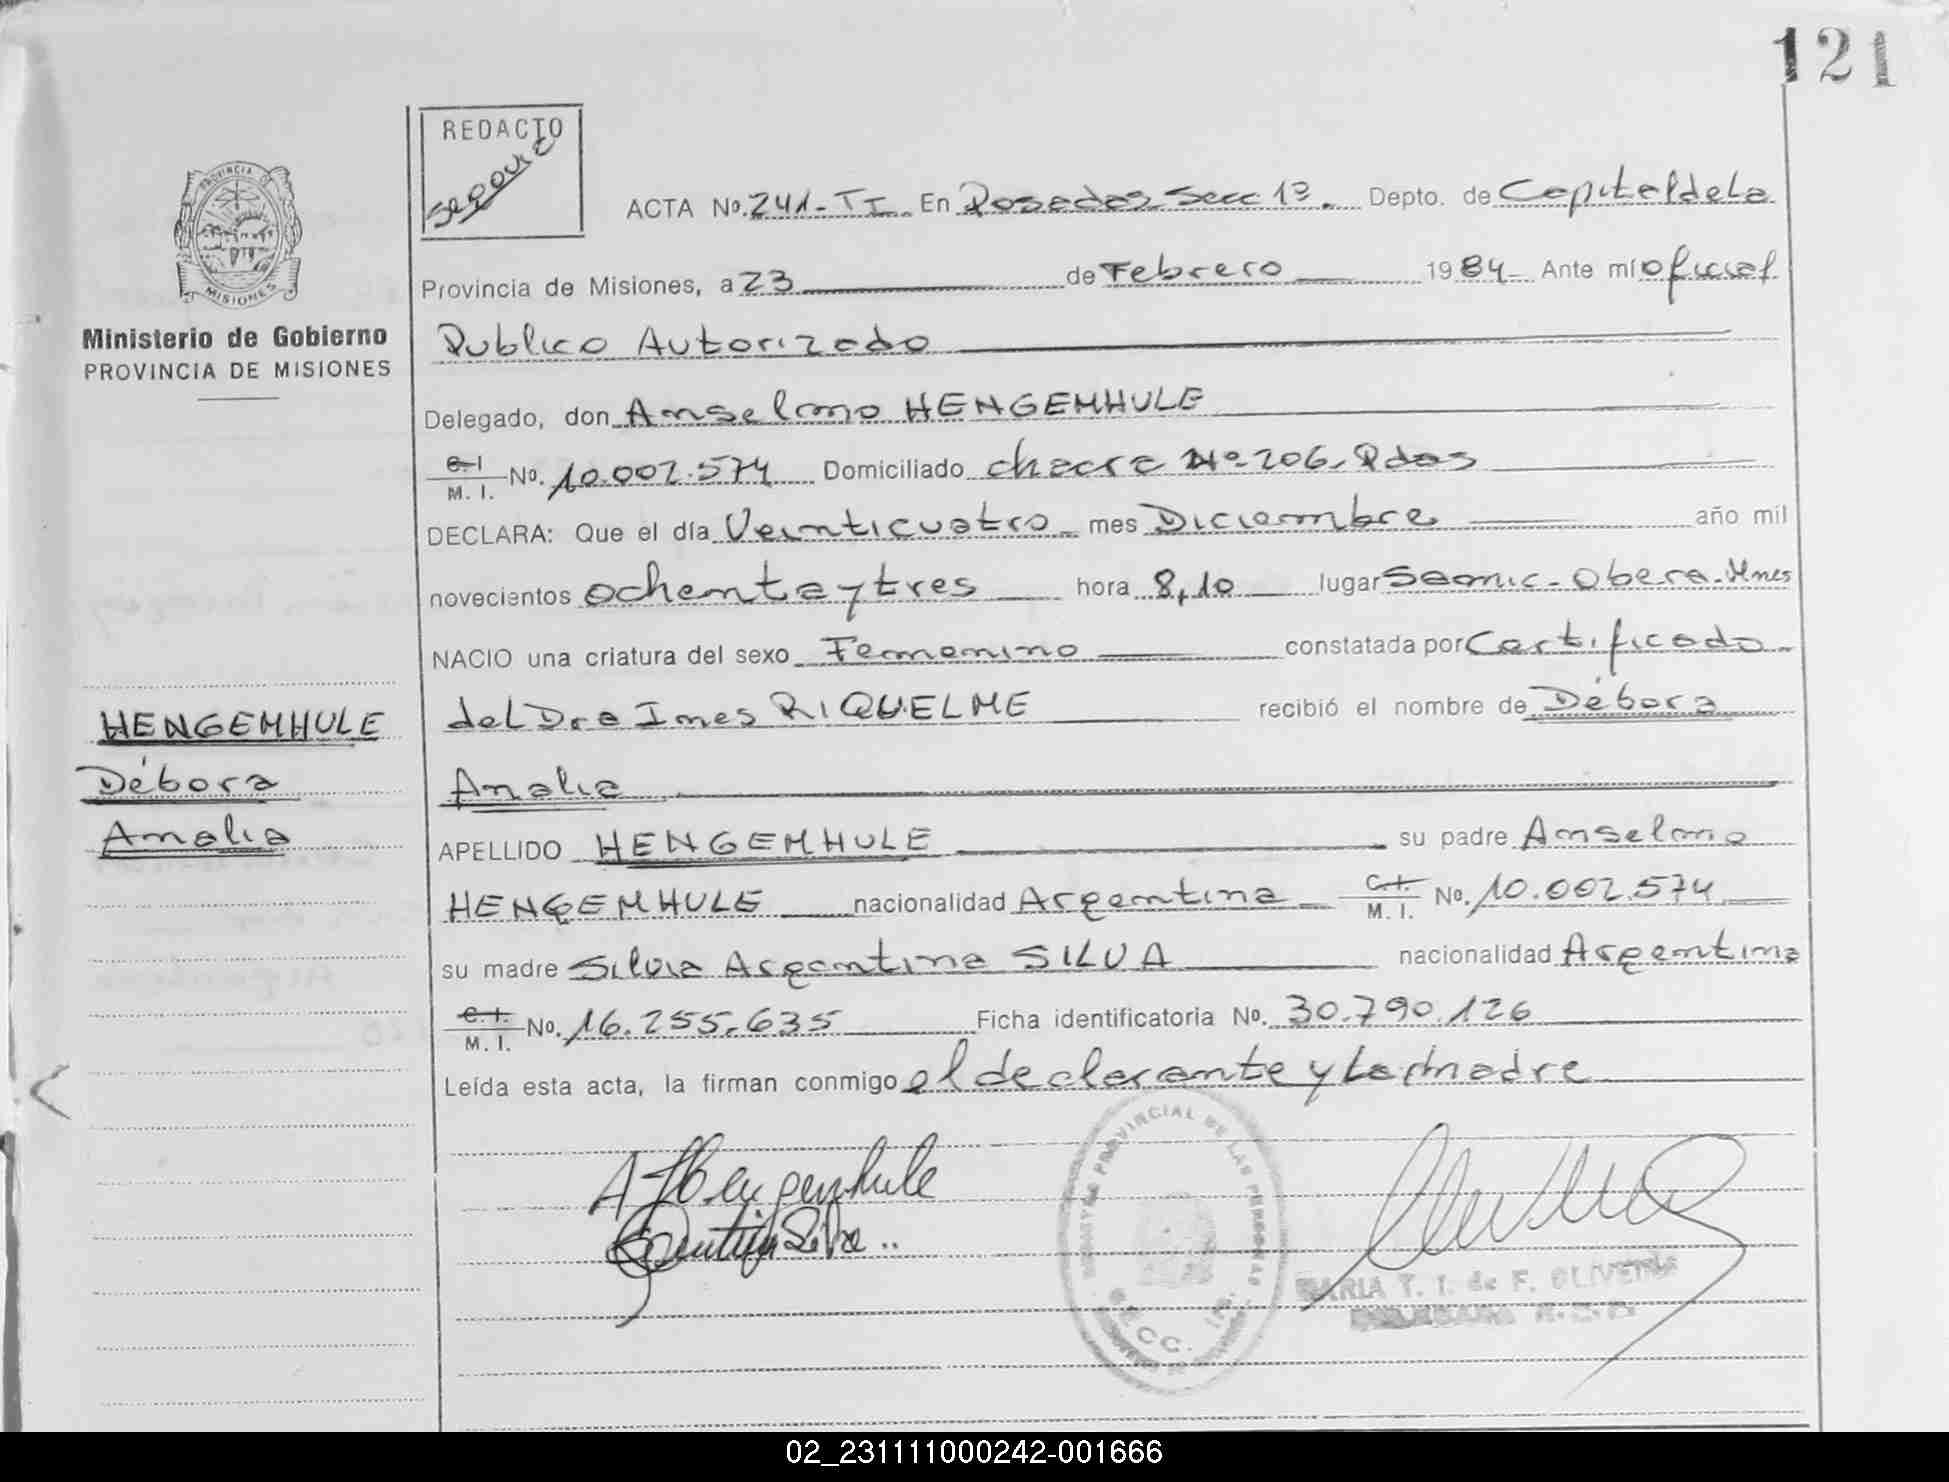 121
REDACTO
PROVINCIA DE
MISIONES
Ministerio de Gobierno
PROVINCIA DE MISIONES
ACTA No. 241-TI En Posadas Secc 1ª. Depto. de Capital de La
Provincia de Misiones, a 23 de Febrero 1984 Ante mí oficial
Publico Autorizado
Delegado, don Anselmo HENGEMHULE
C.I. M. I. No. 10.002.574 Domiciliado chacra Nº 206. Pdas
DECLARA: Que el día Veinticuatro mes Diciembre año mil
novecientos ochenta y tres hora 8,10 lugar Samic - Obera - Mnes
NACIO una criatura del sexo Femenino constatada por Certificado
del Dra Ines RIQUELME recibió el nombre de Débora
Analia
APELLIDO HENGEMHULE su padre Anselmo
HENGEMHULE nacionalidad Argentina C.I. M. I. No. 10.002.574
su madre Silvia Argentina SILVA nacionalidad Argentina
C.I. M. I. No. 16.255.635 Ficha identificatoria No. 30.790.126
Leída esta acta, la firman conmigo el declarante y la madre
HENGEMHULE
Débora
Analia
A Hengenhule
PROVINCIAL DE LAS PERSONAS
SECC. 1ª
MARIA T. I. de F. OLIVEIRA
02_231111000242-001666